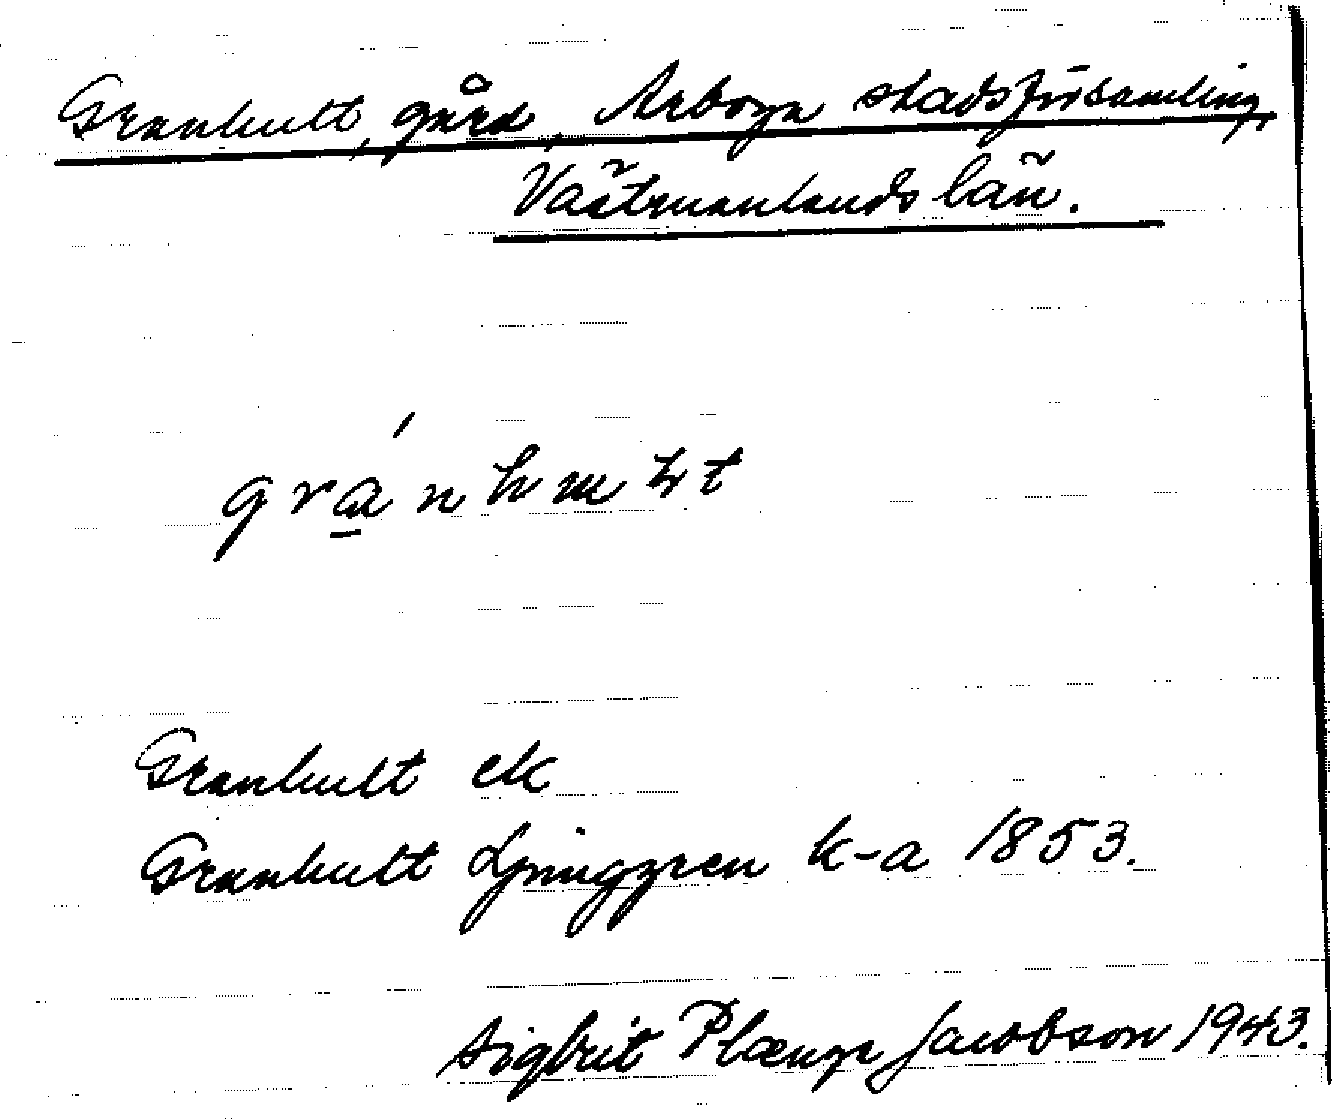 Granhult, gård, Arboga stadsförsamling,
Västmanlands län.
Granhult ek
Granhult Ljunggren k-a 1853.
Sigbrit Plænge Jacobson 1943.